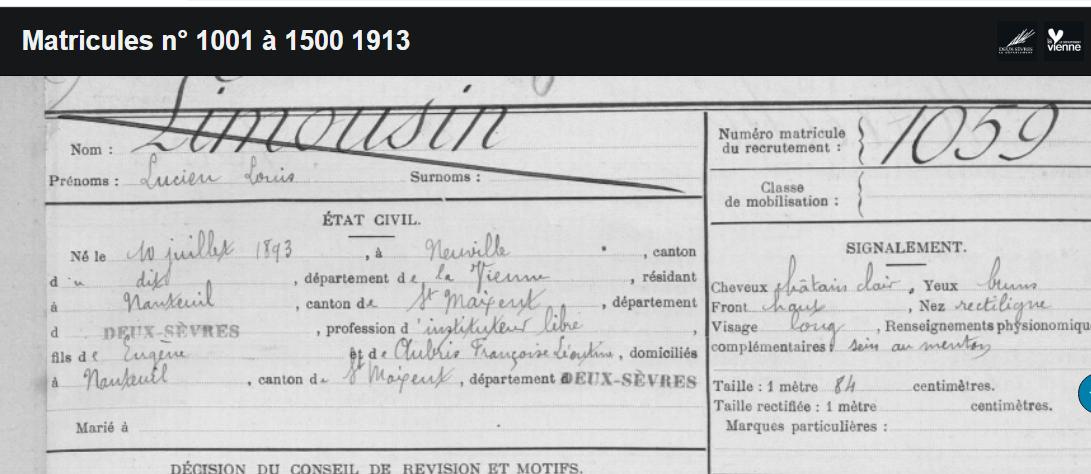 Matricules n° 1001 à 1500 1913
DEUX-SÈVRES
vienne
Limousin
Nom :
Prénoms : Lucien Louis Surnoms :
Numéro matricule du recrutement : 1059
Classe de mobilisation :
ÉTAT CIVIL.
Né le 10 juillet 1893 , à Neuville , canton
du dit , département de la Vienne , résidant
à Nanteuil , canton de St Maixent , département
d DEUX-SÈVRES , profession d'instituteur libre ,
fils de Eugène et de Aubris Françoise Léontine , domiciliés
à Nanteuil , canton de St Maixent , département DEUX-SÈVRES
Marié à
SIGNALEMENT.
Cheveux châtain clair , Yeux bruns
Front haut , Nez rectiligne
Visage long , Renseignements physionomiqu
complémentaires : sein au menton
Taille : 1 mètre 84 centimètres.
Taille rectifiée : 1 mètre centimètres.
Marques particulières :
DÉCISION DU CONSEIL DE REVISION ET MOTIFS.